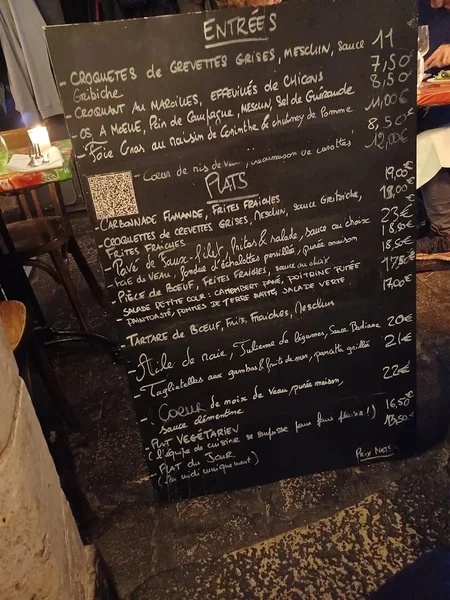 ENTRÉES
- CROQUETES de CREVETTES GRISES, MESCLUN, sauce 11
Gribiche 7,50
- CROQUANT AU MAROILLES, EFFEUILLÉS de CHICONS 8,50
- OS A MOELLE, Pain de Campagne, MESCLUN, Sel de Guérande 11,00€
- Foie Gras au raisin de Corinthe & chutney de Pomme 8,50
- Coeur de ris de 12,00€
PLATS
- CARBONNADE FLAMANDE, FRITES FRAICHES 19,00€
- CROQUETTES de CREVETTES GRISES, MESCLUN, SAUCE GRIBICHE, 18,00€
FRITES FRAICHES
- Pavé de Faux-filet, frites & salade, sauce au choix 23€
- FOIE DU VEAU, fondue d'échalottes persillée, purée maison 18,50€
- PIÈCE de BOEUF, FRITES FRAICHES, sauce au choix 18,50€
- SALADE PETITE COUR: CAMEMBERT PANÉ, POITRINE FUMÉE 17,50€
PAINTOASTÉ, POMMES DE TERRE RATTES, SALADE VERTE 17,00€
- TARTARE de BOEUF, Frites FRAICHES, MESCLUN
- Aile de raie, Julienne de légumes, Sauce 20€
- Tagliatelles aux gambas & fruits de mer, pancetta grillée 21€
- Coeur de noix de veau, purée maison, 22€
sauce clémentine
- PLAT VEGÉTARIEN 16,50€
(l'équipe de cuisine se surpasse pour faire plaisir!)
- PLAT du JOUR 13,50€
(Au midi uniquement)
Prix Nets